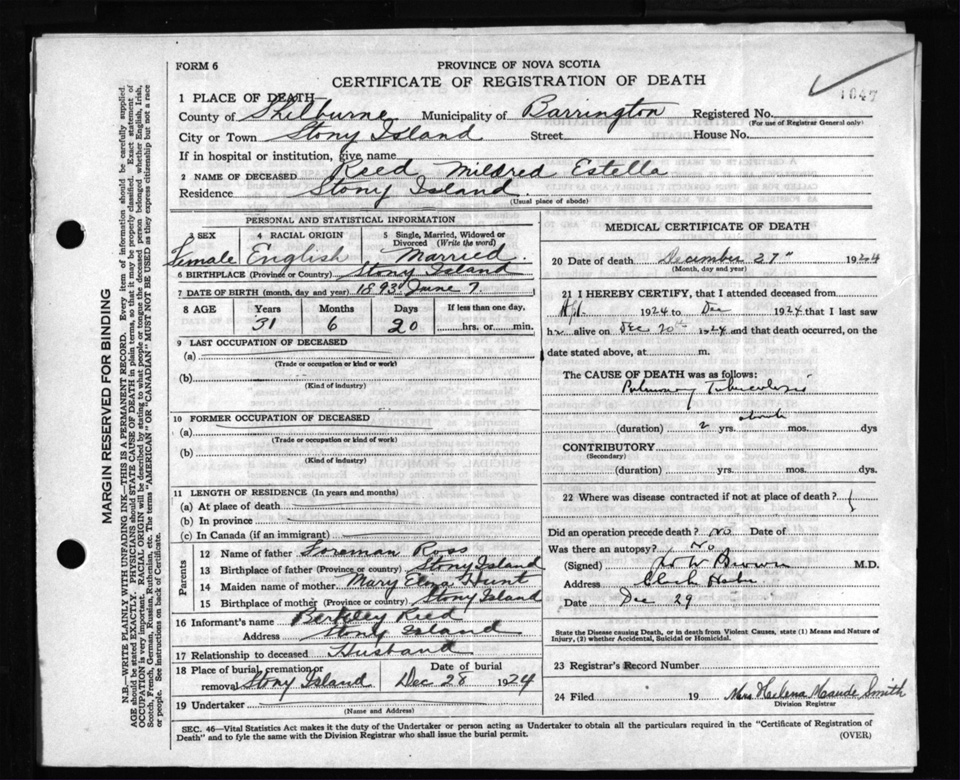 FORM 6
PROVINCE OF NOVA SCOTIA
CERTIFICATE OF REGISTRATION OF DEATH
1047
1 PLACE OF DEATH—
County of Shelburne Municipality of Barrington Registered No.
(For use of Registrar General only)
City or Town Stony Island Street House No.
If in hospital or institution, give name
2 NAME OF DECEASED Reed Mildred Estella
Residence Stony Island
(Usual place of abode)
PERSONAL AND STATISTICAL INFORMATION
3 SEX 4 RACIAL ORIGIN 5 Single, Married, Widowed or Divorced (Write the word)
Female English Married.
6 BIRTHPLACE (Province or Country) Stony Island
7 DATE OF BIRTH (month, day and year) 1893 June 7
8 AGE Years Months Days If less than one day,
31 6 20 hrs. or min.
9 LAST OCCUPATION OF DECEASED
(a)
(Trade or occupation or kind or work)
(b)
(Kind of industry)
10 FORMER OCCUPATION OF DECEASED
(a)
(Trade or occupation or kind of work)
(b)
(Kind of industry)
11 LENGTH OF RESIDENCE (In years and months)
(a) At place of death
(b) In province
(c) In Canada (if an immigrant)
Parents
12 Name of father Foreman Ross
13 Birthplace of father (Province or country) Stony Island
14 Maiden name of mother Mary Hunt
15 Birthplace of mother (Province or country) Stony Island
16 Informant's name Berkley Reed
Address Stony Island
17 Relationship to deceased Husband
18 Place of burial, cremation or Date of burial
removal Stony Island Dec 28 1924
19 Undertaker
(Name and Address)
MEDICAL CERTIFICATE OF DEATH
20 Date of death December 27" 1924
(Month, day and year)
21 I HEREBY CERTIFY, that I attended deceased from
1924 to Dec 1924 that I last saw
her alive on Dec 20th 1924 and that death occurred, on
date stated above, at m.
The CAUSE OF DEATH was as follows:
Pulmonary Tuberculosis
(duration) 2 yrs. mos. dys
CONTRIBUTORY
(Secondary)
(duration) yrs. mos. dys.
22 Where was disease contracted if not at place of death?
Did an operation precede death? No Date of
Was there an autopsy? No
(Signed) Brown M.D.
Address Clark Harbor
Date Dec 29
State the Disease causing Death, or in death from Violent Causes, state (1) Means and Nature of
Injury, (2) whether Accidental, Suicidal or Homicidal.
23 Registrar's Record Number
24 Filed 19 Mrs Haelena Maude Smith
Division Registrar
SEC. 46—Vital Statistics Act makes it the duty of the Undertaker or person acting as Undertaker to obtain all the particulars required in the "Certificate of Registration of
Death" and to fyle the same with the Division Registrar who shall issue the burial permit.
(OVER)
MARGIN RESERVED FOR BINDING
N.B.—WRITE PLAINLY WITH UNFADING INK—THIS IS A PERMANENT RECORD. Every item of information should be carefully supplied.
AGE should be stated EXACTLY. PHYSICIANS should STATE CAUSE OF DEATH in plain terms, so that it may be properly classified. Exact statement of
OCCUPATION is very important. RACIAL ORIGIN will be described by stating to what people or tongue the deceased person belonged whether English, Irish,
Scotch, French, German, Russian, Ruthenian, etc. The terms "AMERICAN" OR "CANADIAN" MUST NOT BE USED as they express citizenship but not a race
or people. See instructions on back of Certificate.